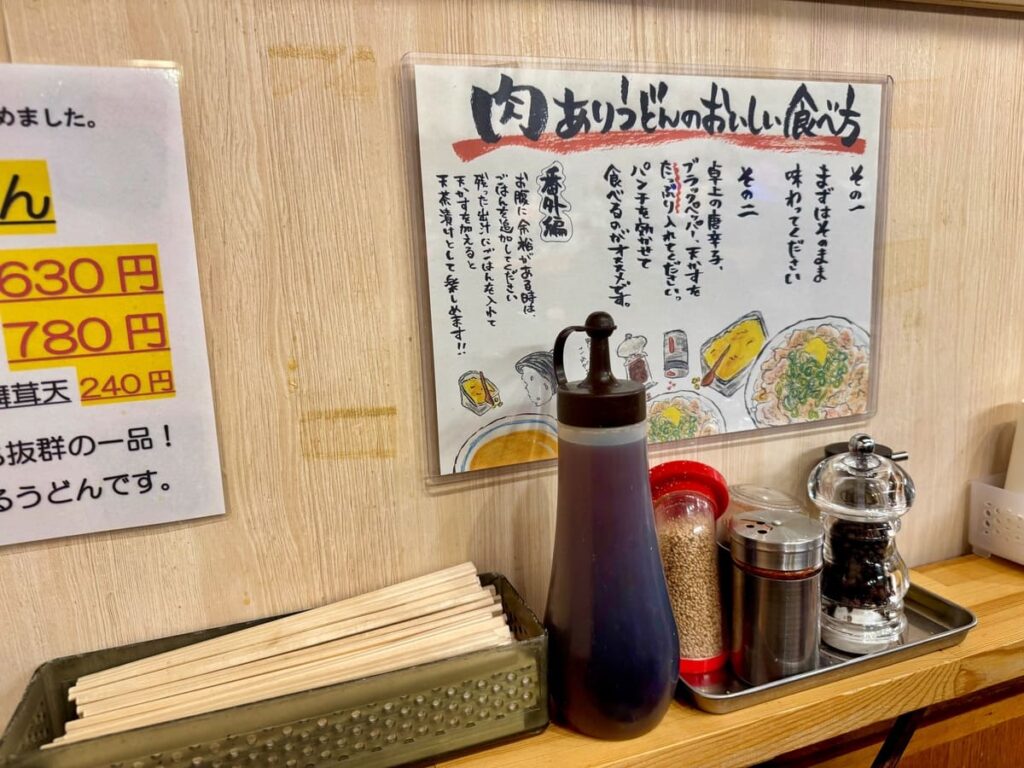 めました。
ん
630円
780円
舞茸天 240円
抜群の一品！
るうどんです。
肉ありうどんのおいしい食べ方
その一
まずはそのまま
味わってください
その二
卓上の唐辛子、
ブラックペッパー、天かすを
たっぷり入れてください。
パンチを効かせて
食べるのがオススメです。
番外編
お腹に余裕がある時は、
ごはんを追加してください
残った出汁にごはんを入れて
天かすを加えると
天茶漬けとして楽しめます!!